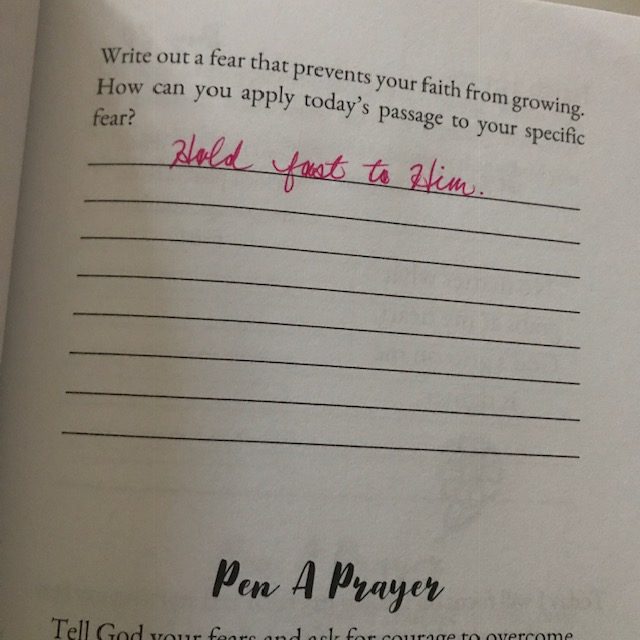 Write out a fear that prevents your faith from growing.
How can you apply today's passage to your specific
fear?
Hold fast to Him.
Pen A Prayer
Tell God your fears and ask for courage to overcome